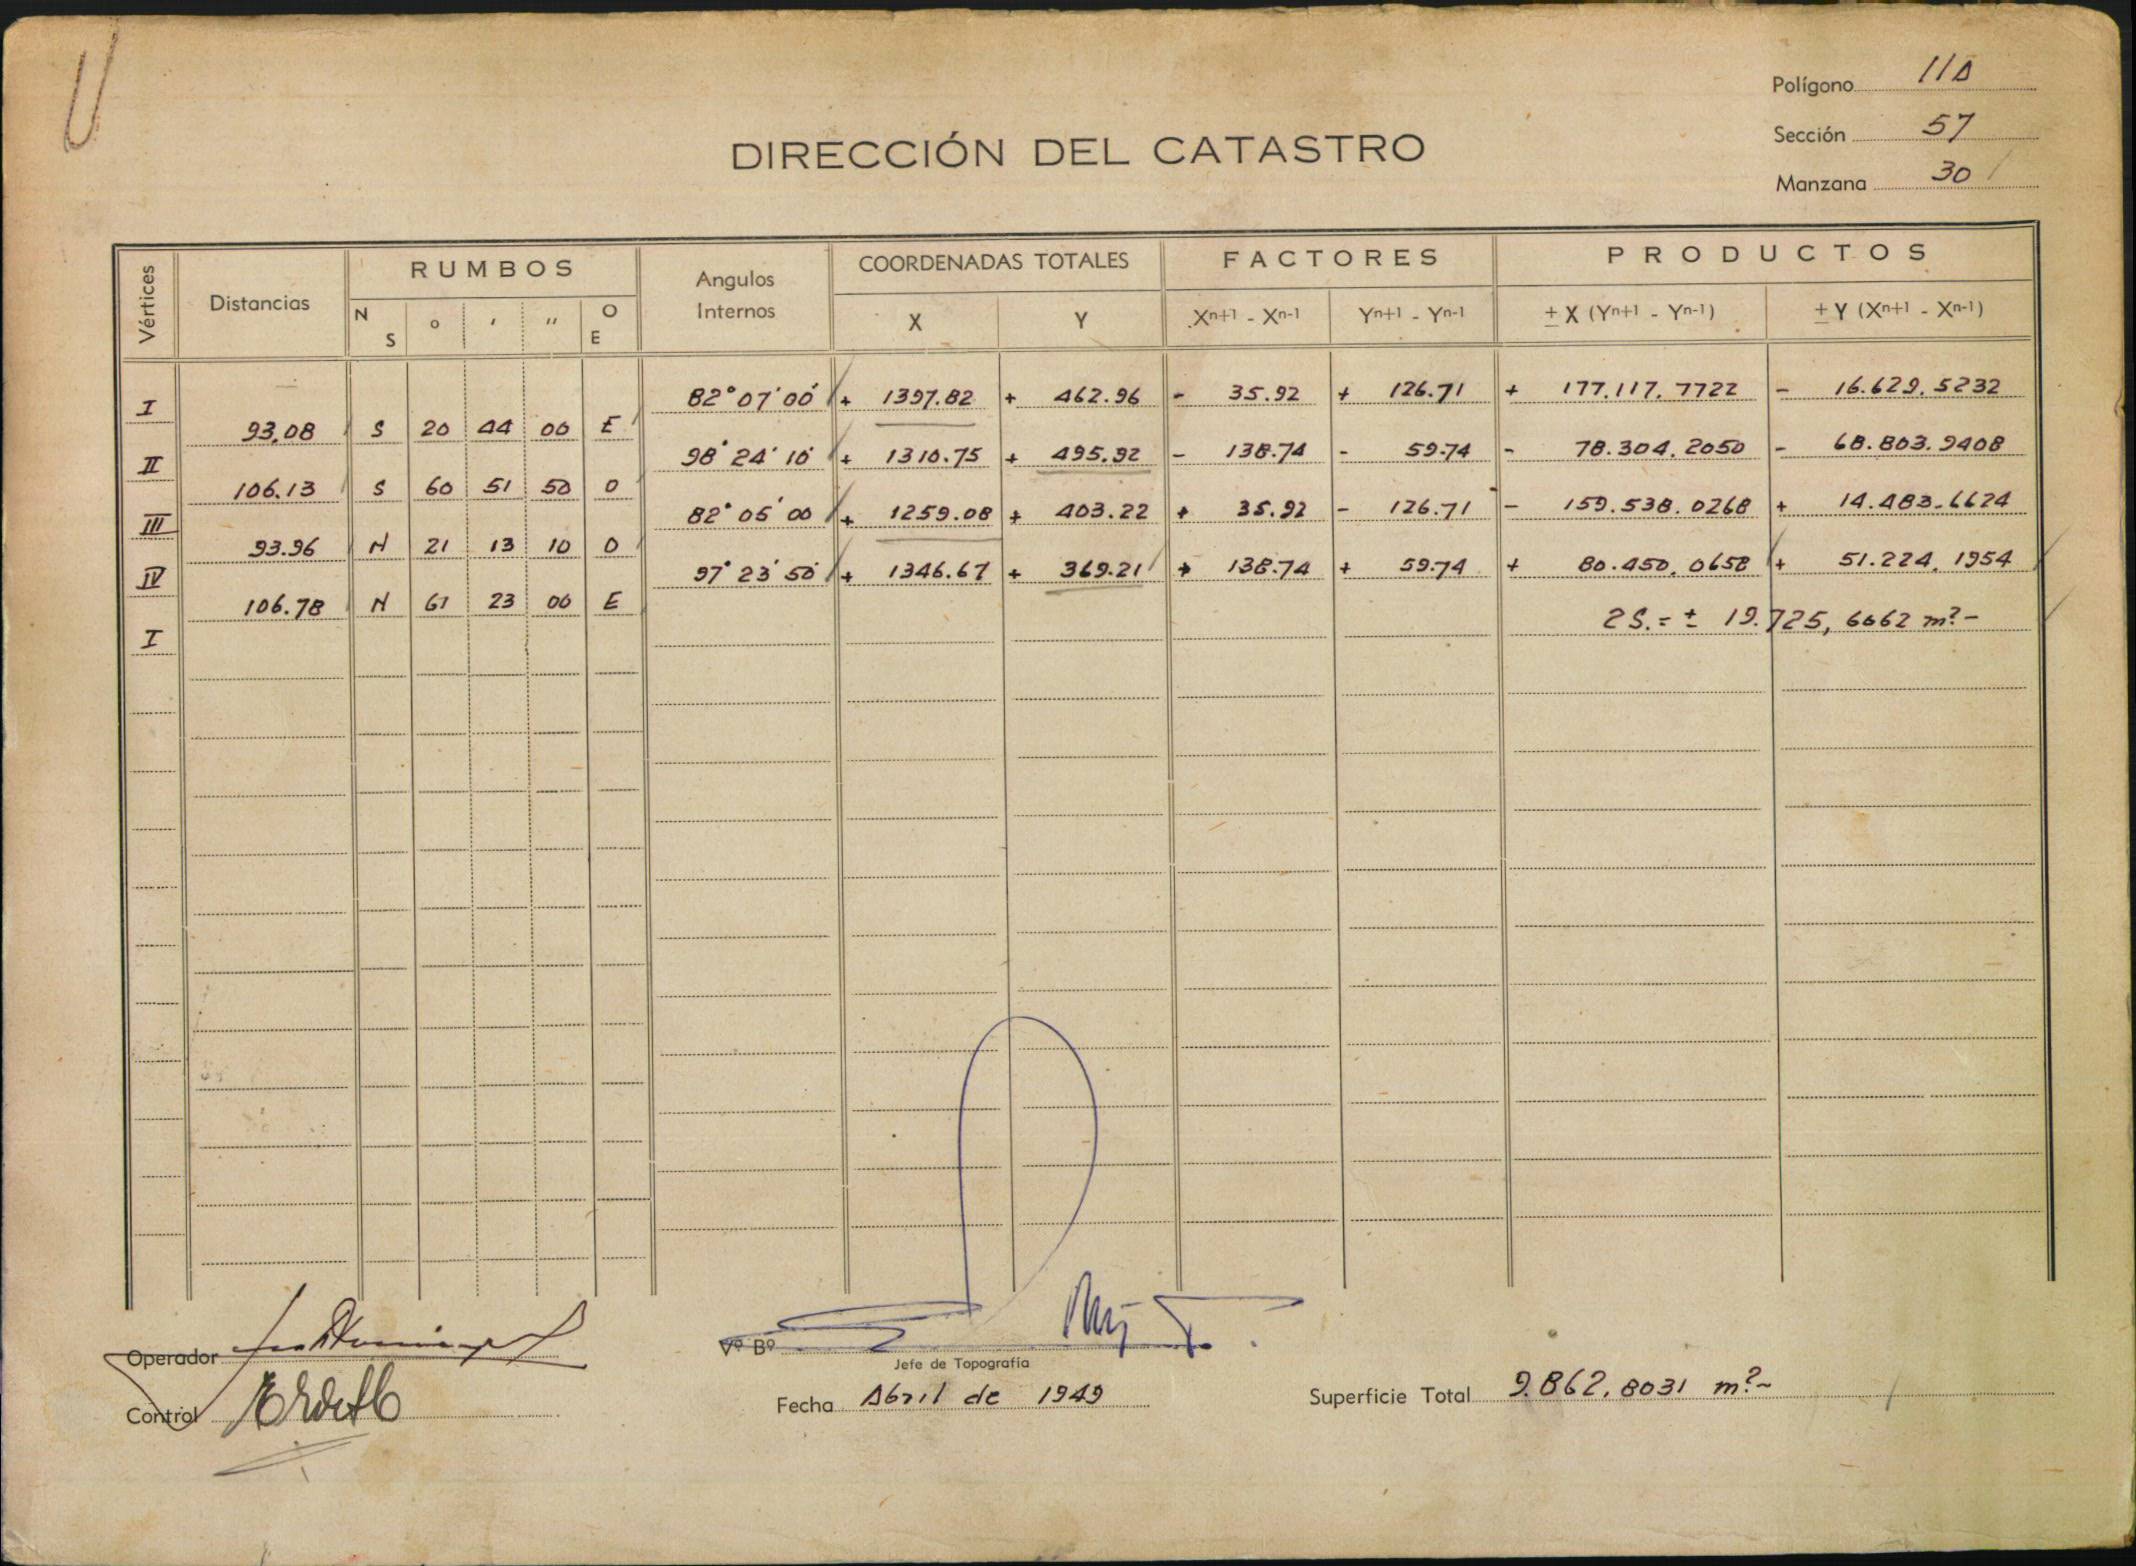 Polígono 11A
Sección 57
Manzana 30
DIRECCIÓN DEL CATASTRO
Vértices Distancias RUMBOS Angulos Internos COORDENADAS TOTALES FACTORES PRODUCTOS
N S o ' '' O E X Y Xn+1 - Xn-1 Yn+1 - Yn-1 ± X (Yn+1 - Yn-1) ± Y (Xn+1 - Xn-1)
I 82° 07' 00" + 1397.82 + 462.96 - 35.92 + 126.71 + 177.117.7722 - 16.629.5232
93.08 S 20 44 00 E
II 98° 24' 10" + 1310.75 + 495.92 - 138.74 - 59.74 - 78.304.2050 - 68.803.9408
106.13 S 60 51 50 O
III 82° 05' 00" + 1259.08 + 403.22 + 35.92 - 126.71 - 159.538.0268 + 14.483.6624
93.96 N 21 13 10 O
IV 97° 23' 50" + 1346.67 + 369.21 + 138.74 + 59.74 + 80.450.0658 + 51.224.1954
106.78 N 61 23 00 E
I 2S. = ± 19.725,6062 m²-
Operador
Vº Bº
Jefe de Topografía
Control
Fecha Abril de 1949
Superficie Total 9.862,8031 m²-